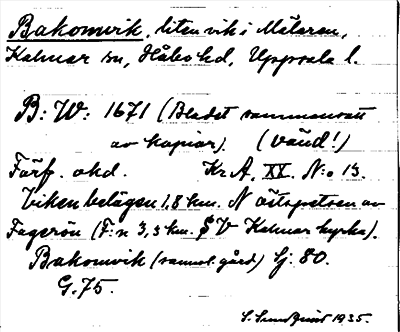 Bakomvik, liten vik i Mälaren,
Kalmar sn, Håbo hd, Uppsala l.
B: W: 1671 (Bladet sammansatt
av kopior). (vänd!)
Förf. okd. Kr A, XX. N:o 13.
Viken belägen 1,8 km. N östspetsen av
Fagerön (F:n 3,3 km. SV Kalmar kyrka).
Bakomvik (samml. gård) Sj: 80.
G. 75.
S. Sundquist 1935.